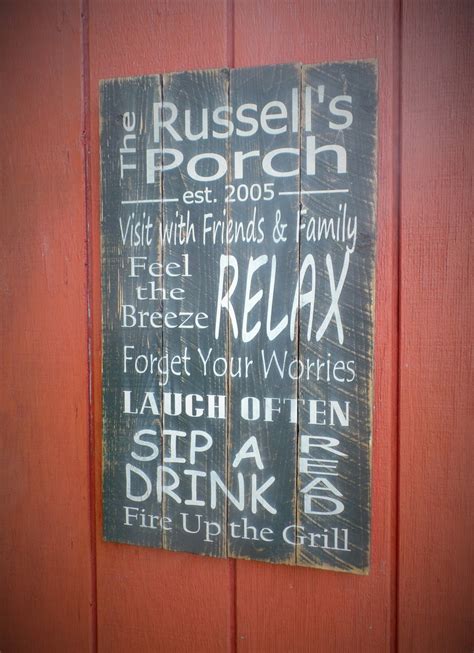 The Russell's
Porch
est. 2005
Visit with Friends & Family
Feel
the
Breeze
RELAX
Forget Your Worries
LAUGH OFTEN
SIP A
DRINK
READ
Fire Up the Grill